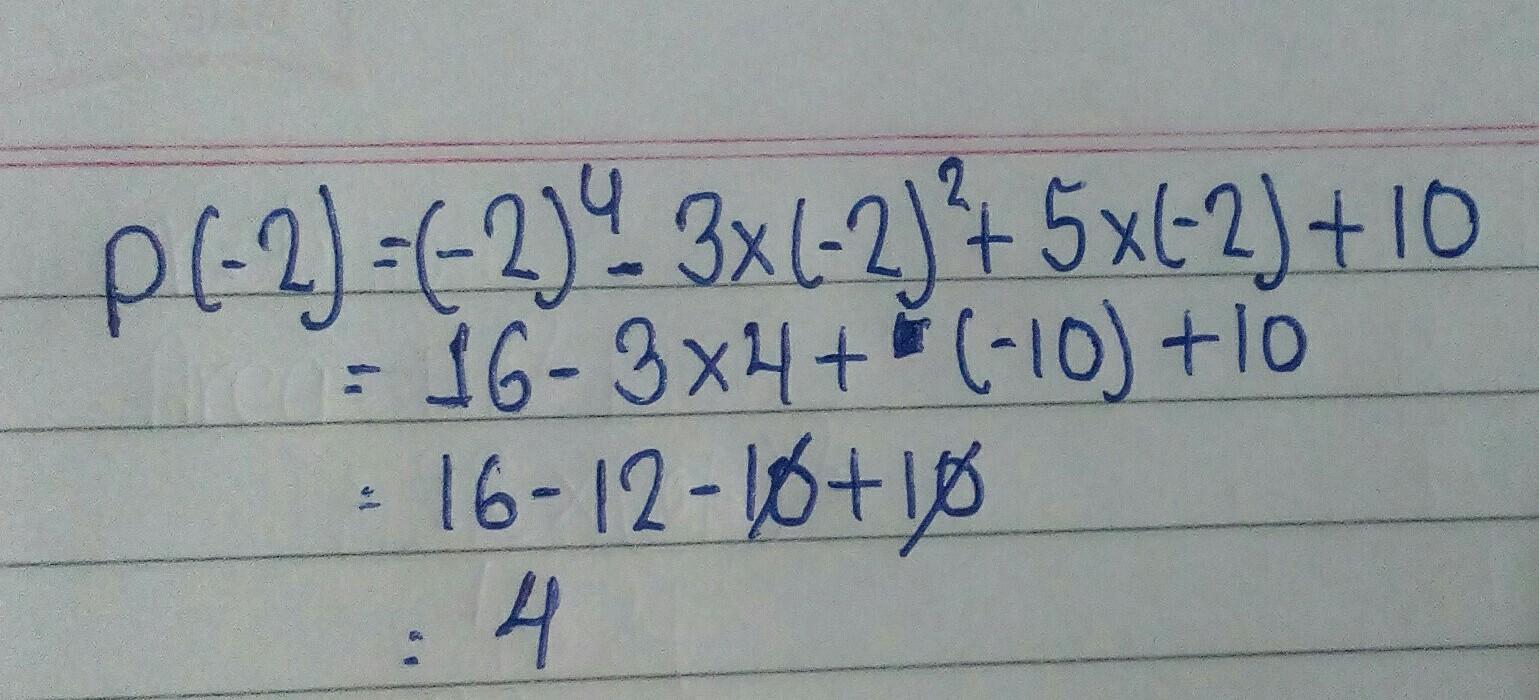 p(-2) = (-2)⁴ - 3×(-2)² + 5×(-2) + 10
= 16 - 3×4 + (-10) + 10
= 16 - 12 - 10 + 10
= 4